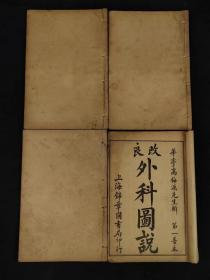 華亭高梅溪先生輯
改良
外科圖說
上海錦章圖書局印行